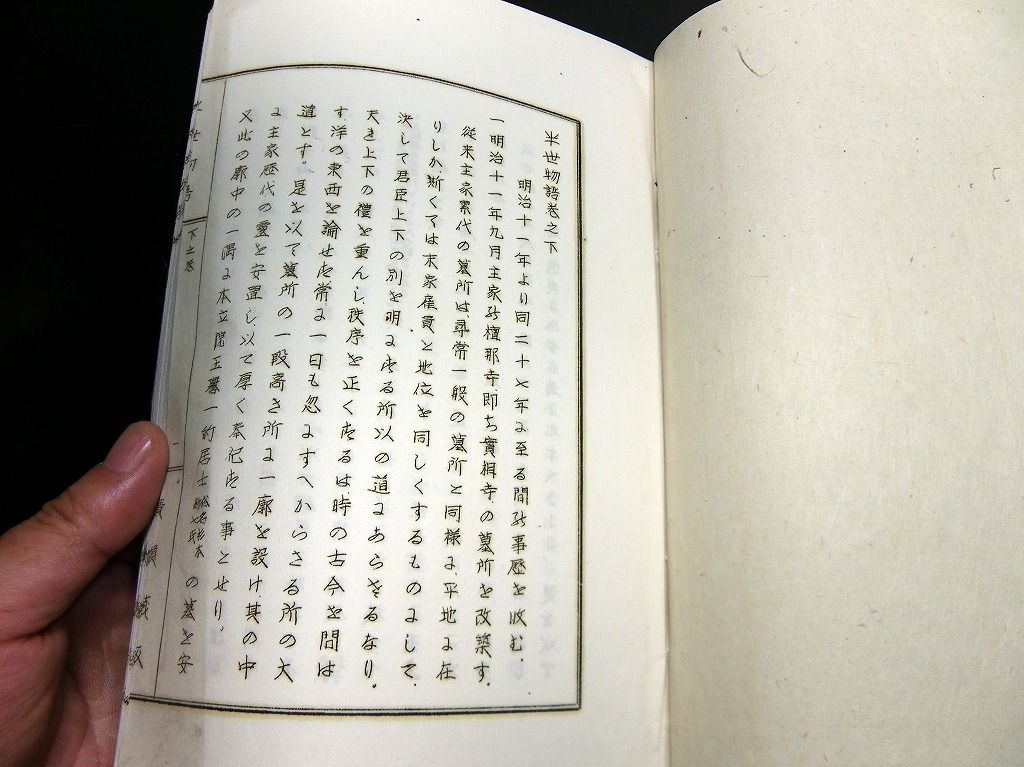 半世物語巻之下
明治十一年より同二十七年に至る間の事歴を收む.
一明治十一年九月主家の檀那寺.即ち實相寺.の墓所を改築す.
從来主家累代の墓所は.尋常一般の墓所と同様に.平地に在
りしか.斯くては末家雇員と地位を同しくするものにして、
決して君臣上下の別を明にする所以の道にあらさるなり。
夫き上下の禮を重んし.秩序を正くするは時の古今を問は
す.洋の東西を論せす.常に一日も忽にすへからさる所の大
道とす。是を以て墓所の一段高き所に一廓を設け.其の中
に主家歴代の霊を安置し.以て厚く奉祀する事とせり。
又此の廓中の一隅に本立院王譽一約居士 の墓を安
半世物語
下之巻
一